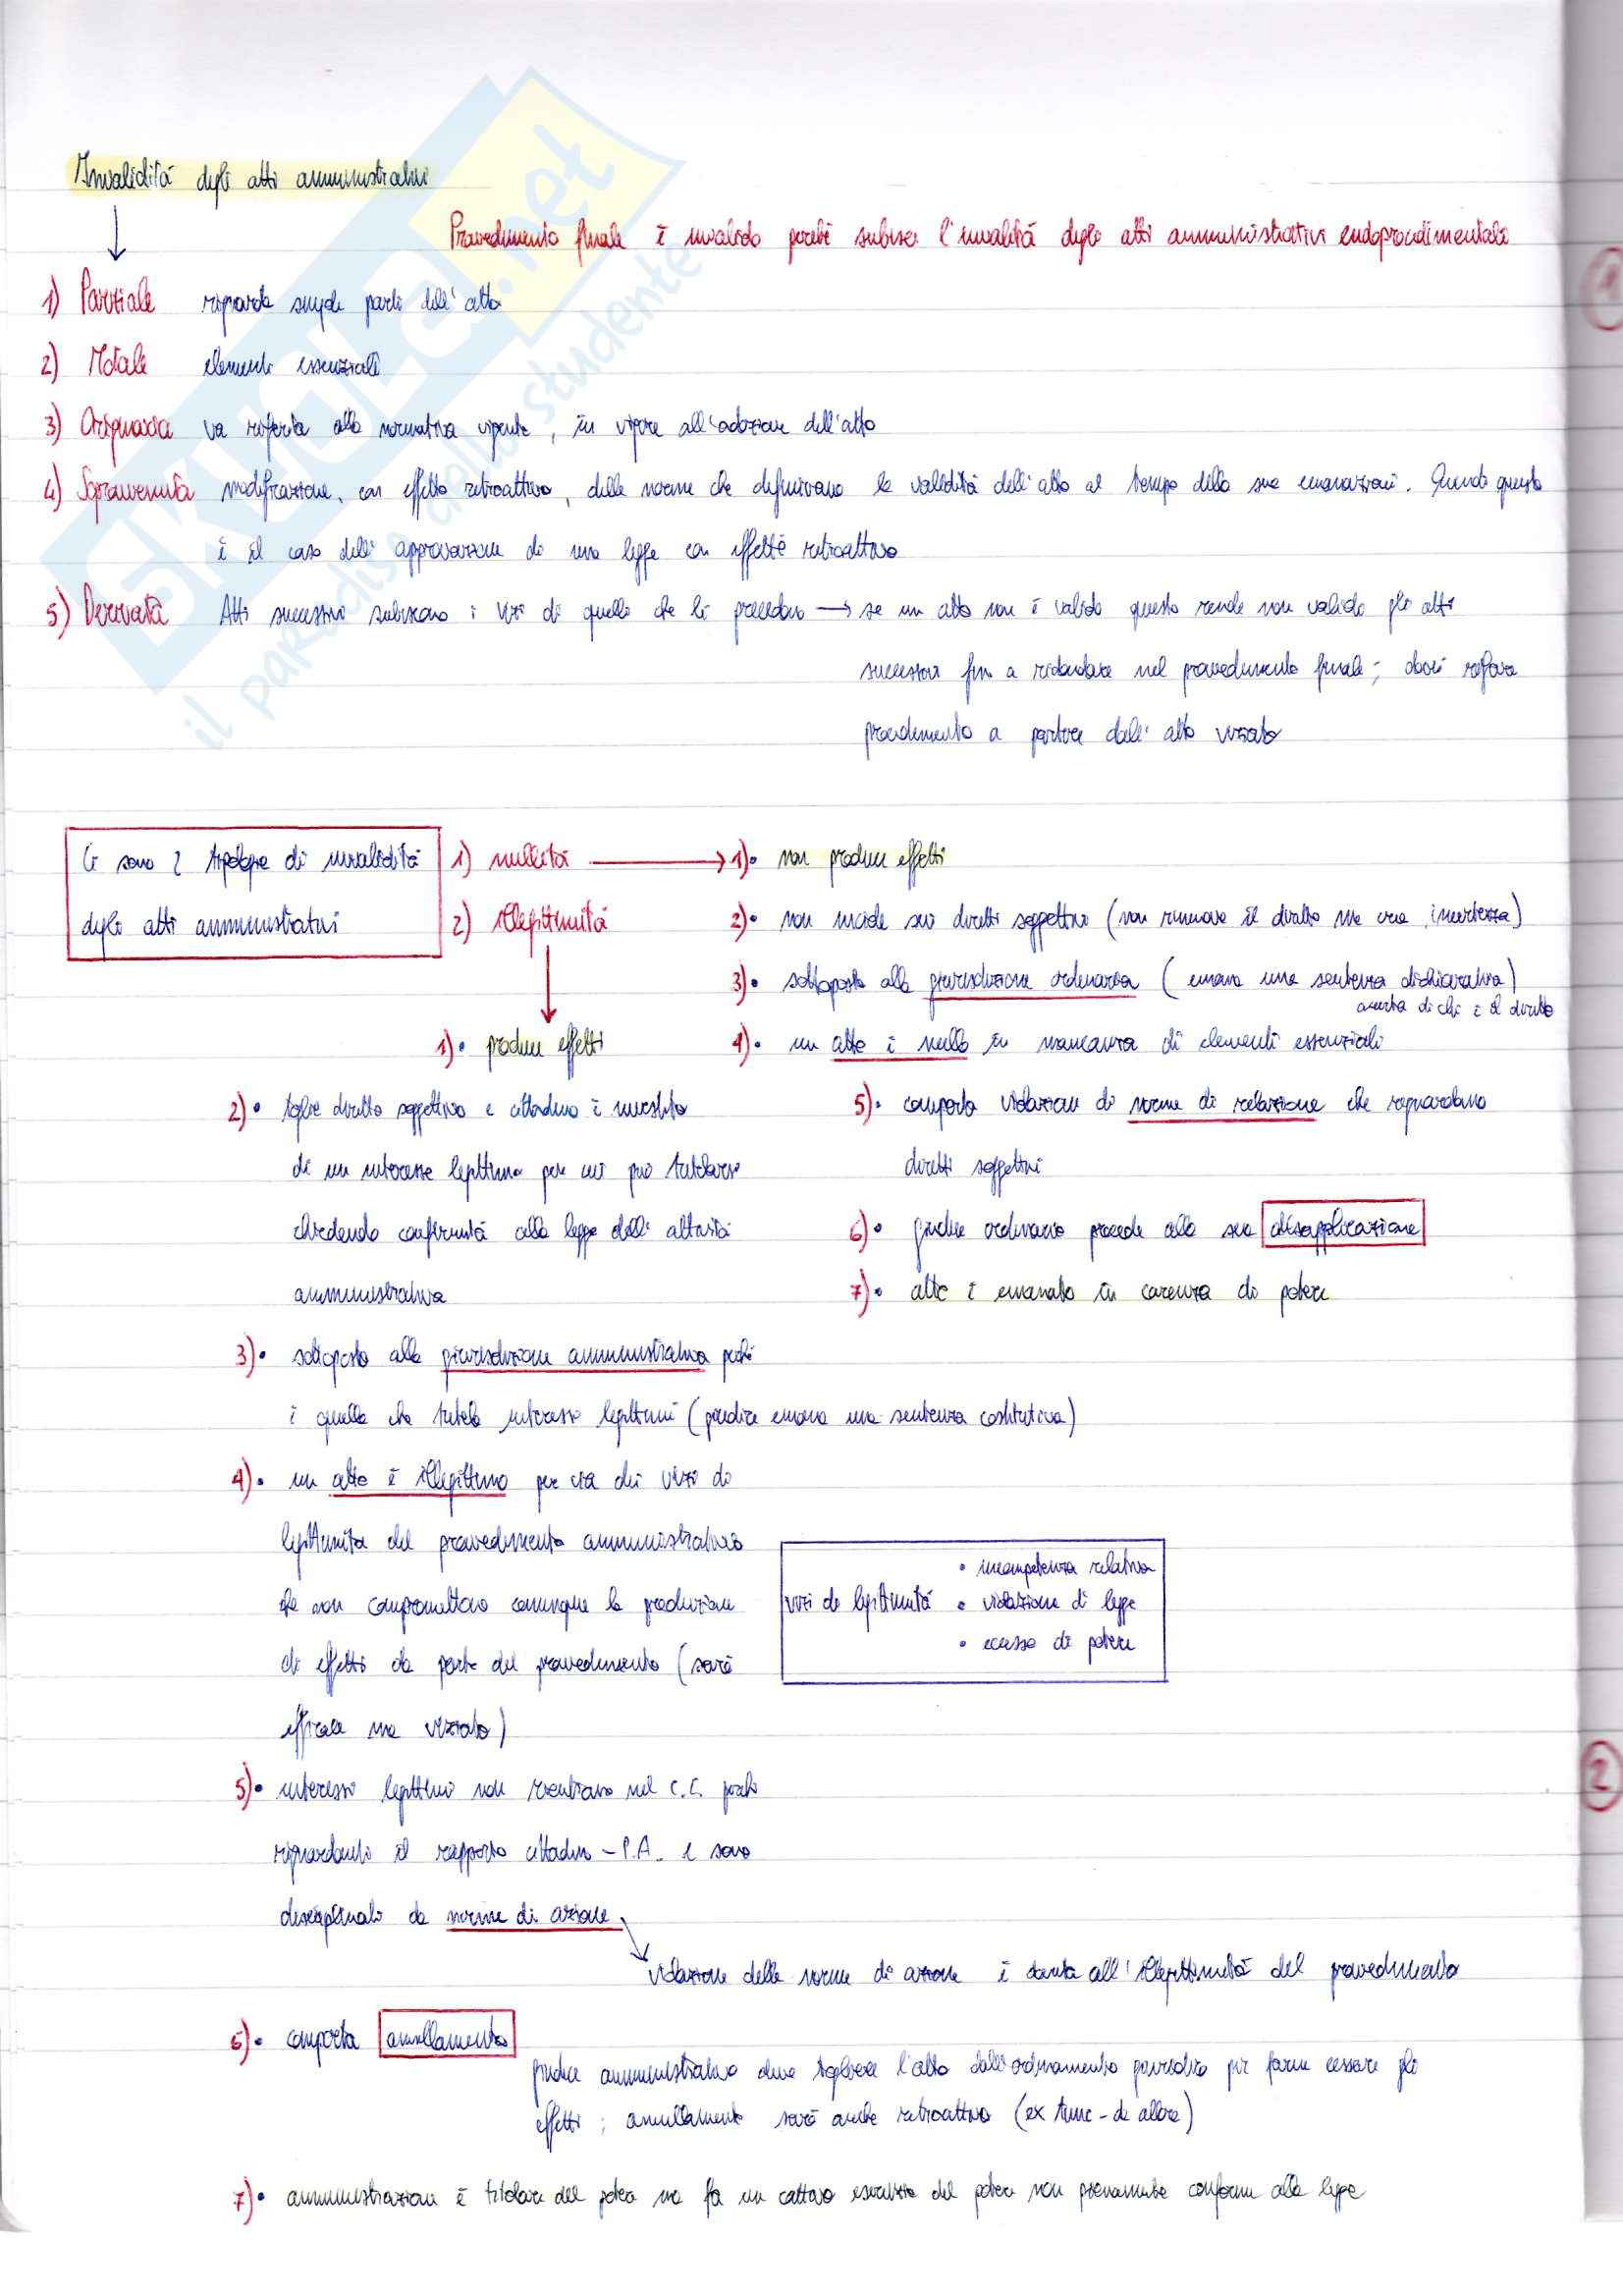 Invalidità degli atti amministrativi
Provvedimento finale è invalido perché subisce l'invalità degli atti amministrativi endoprocedimentali
1) Parziale riguarda singole parti dell'atto
2) Totale elementi essenziali
3) Originaria va riferita alla normativa vigente, in vigore all'adozione dell'atto
4) Sopravvenuta modificazione, con effetto retroattivo, delle norme che definivano la validità dell'atto al tempo della sua emanazione. Quindi questo
è il caso dell'approvazione di una legge con effetto retroattivo
5) Derivata Atti successivi subiscono i vizi di quello che li precedono → se un atto non è valido questo rende non valido gli atti
successivi fino a ridondare nel provvedimento finale; dovrò rifare
procedimento a partire dall'atto viziato
Ci sono 2 tipologie di invalidità
degli atti amministrativi
1) nullità → 1)• non produce effetti
2) illegittimità
2)• non incide sui diritti soggettivi (non rimuove il diritto ma crea incertezza)
3)• sottoposto alla giurisdizione ordinaria (emana una sentenza dichiarativa)
accerta di chi è il diritto
4)• un atto è nullo in mancanza di elementi essenziali
5)• comporta violazione di norme di relazione che riguardano
diritti soggettivi
6)• giudice ordinario procede alla sua disapplicazione
7)• atto è emanato in carenza di potere
1)• produce effetti
2)• toglie diritto soggettivo e cittadino è investito
di un interesse legittimo per cui può tutelarsi
chiedendo conformità alla legge dell'attività
amministrativa
3)• sottoposto alla giurisdizione amministrativa perché
è quella che tutela interessi legittimi (giudice emana una sentenza costitutiva)
4)• un atto è illegittimo per via dei vizi di
legittimità del provvedimento amministrativo
che non compromettono comunque la produzione
di effetti da parte del provvedimento (sarà
efficace ma viziato)
vizi di legittimità
• incompetenza relativa
• violazione di legge
• eccesso di potere
5)• interessi legittimi non rientrano nel C.C. perché
riguardanti il rapporto cittadino - P.A. e sono
disciplinati da norme di azione
violazione delle norme di azione è dovuta all'illegittimità del provvedimento
6)• comporta annullamento
giudice amministrativo deve togliere l'atto dall'ordinamento giuridico per farne cessare gli
effetti; annullamento sarà anche retroattivo (ex tunc - da allora)
7)• amministrazione è titolare del potere ma fa un cattivo esercizio del potere non pienamente conforme alla legge
1
2
SKUOLA.net
il paradiso dello studente